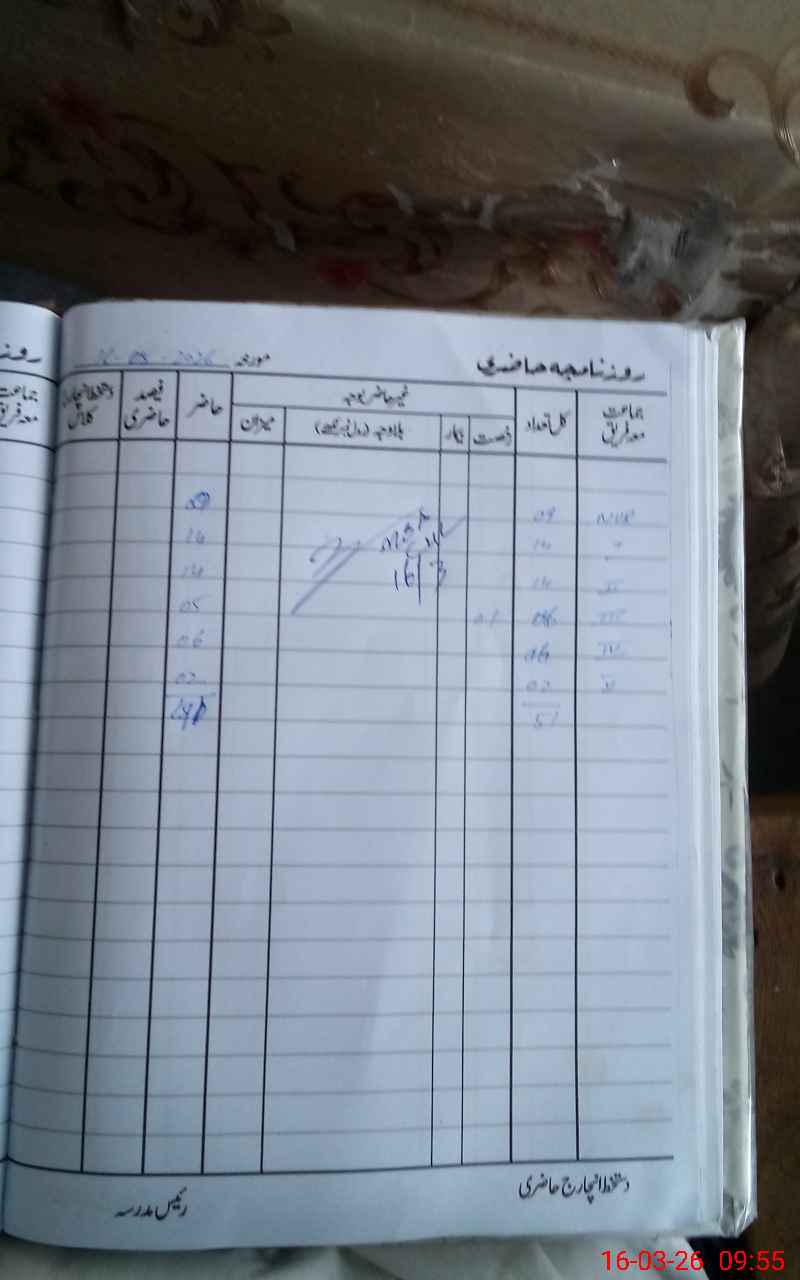 روزنامچہ حاضری مورخہ 16-03-2026
جماعت معہ فریق کل تعداد غیر حاضر بوجہ حاضر فیصد حاضری دستخط انچارج کلاس
رخصت بیمار بلاوجہ میزان
NUR 09 09
I 14 14
II 14 14
III 06 01 05
IV 06 06
V 02 02
51
16/3
دستخط انچارج حاضری
رئیس مدرسہ
روز
جماعت
معہ فریق
16-03-26 09:55